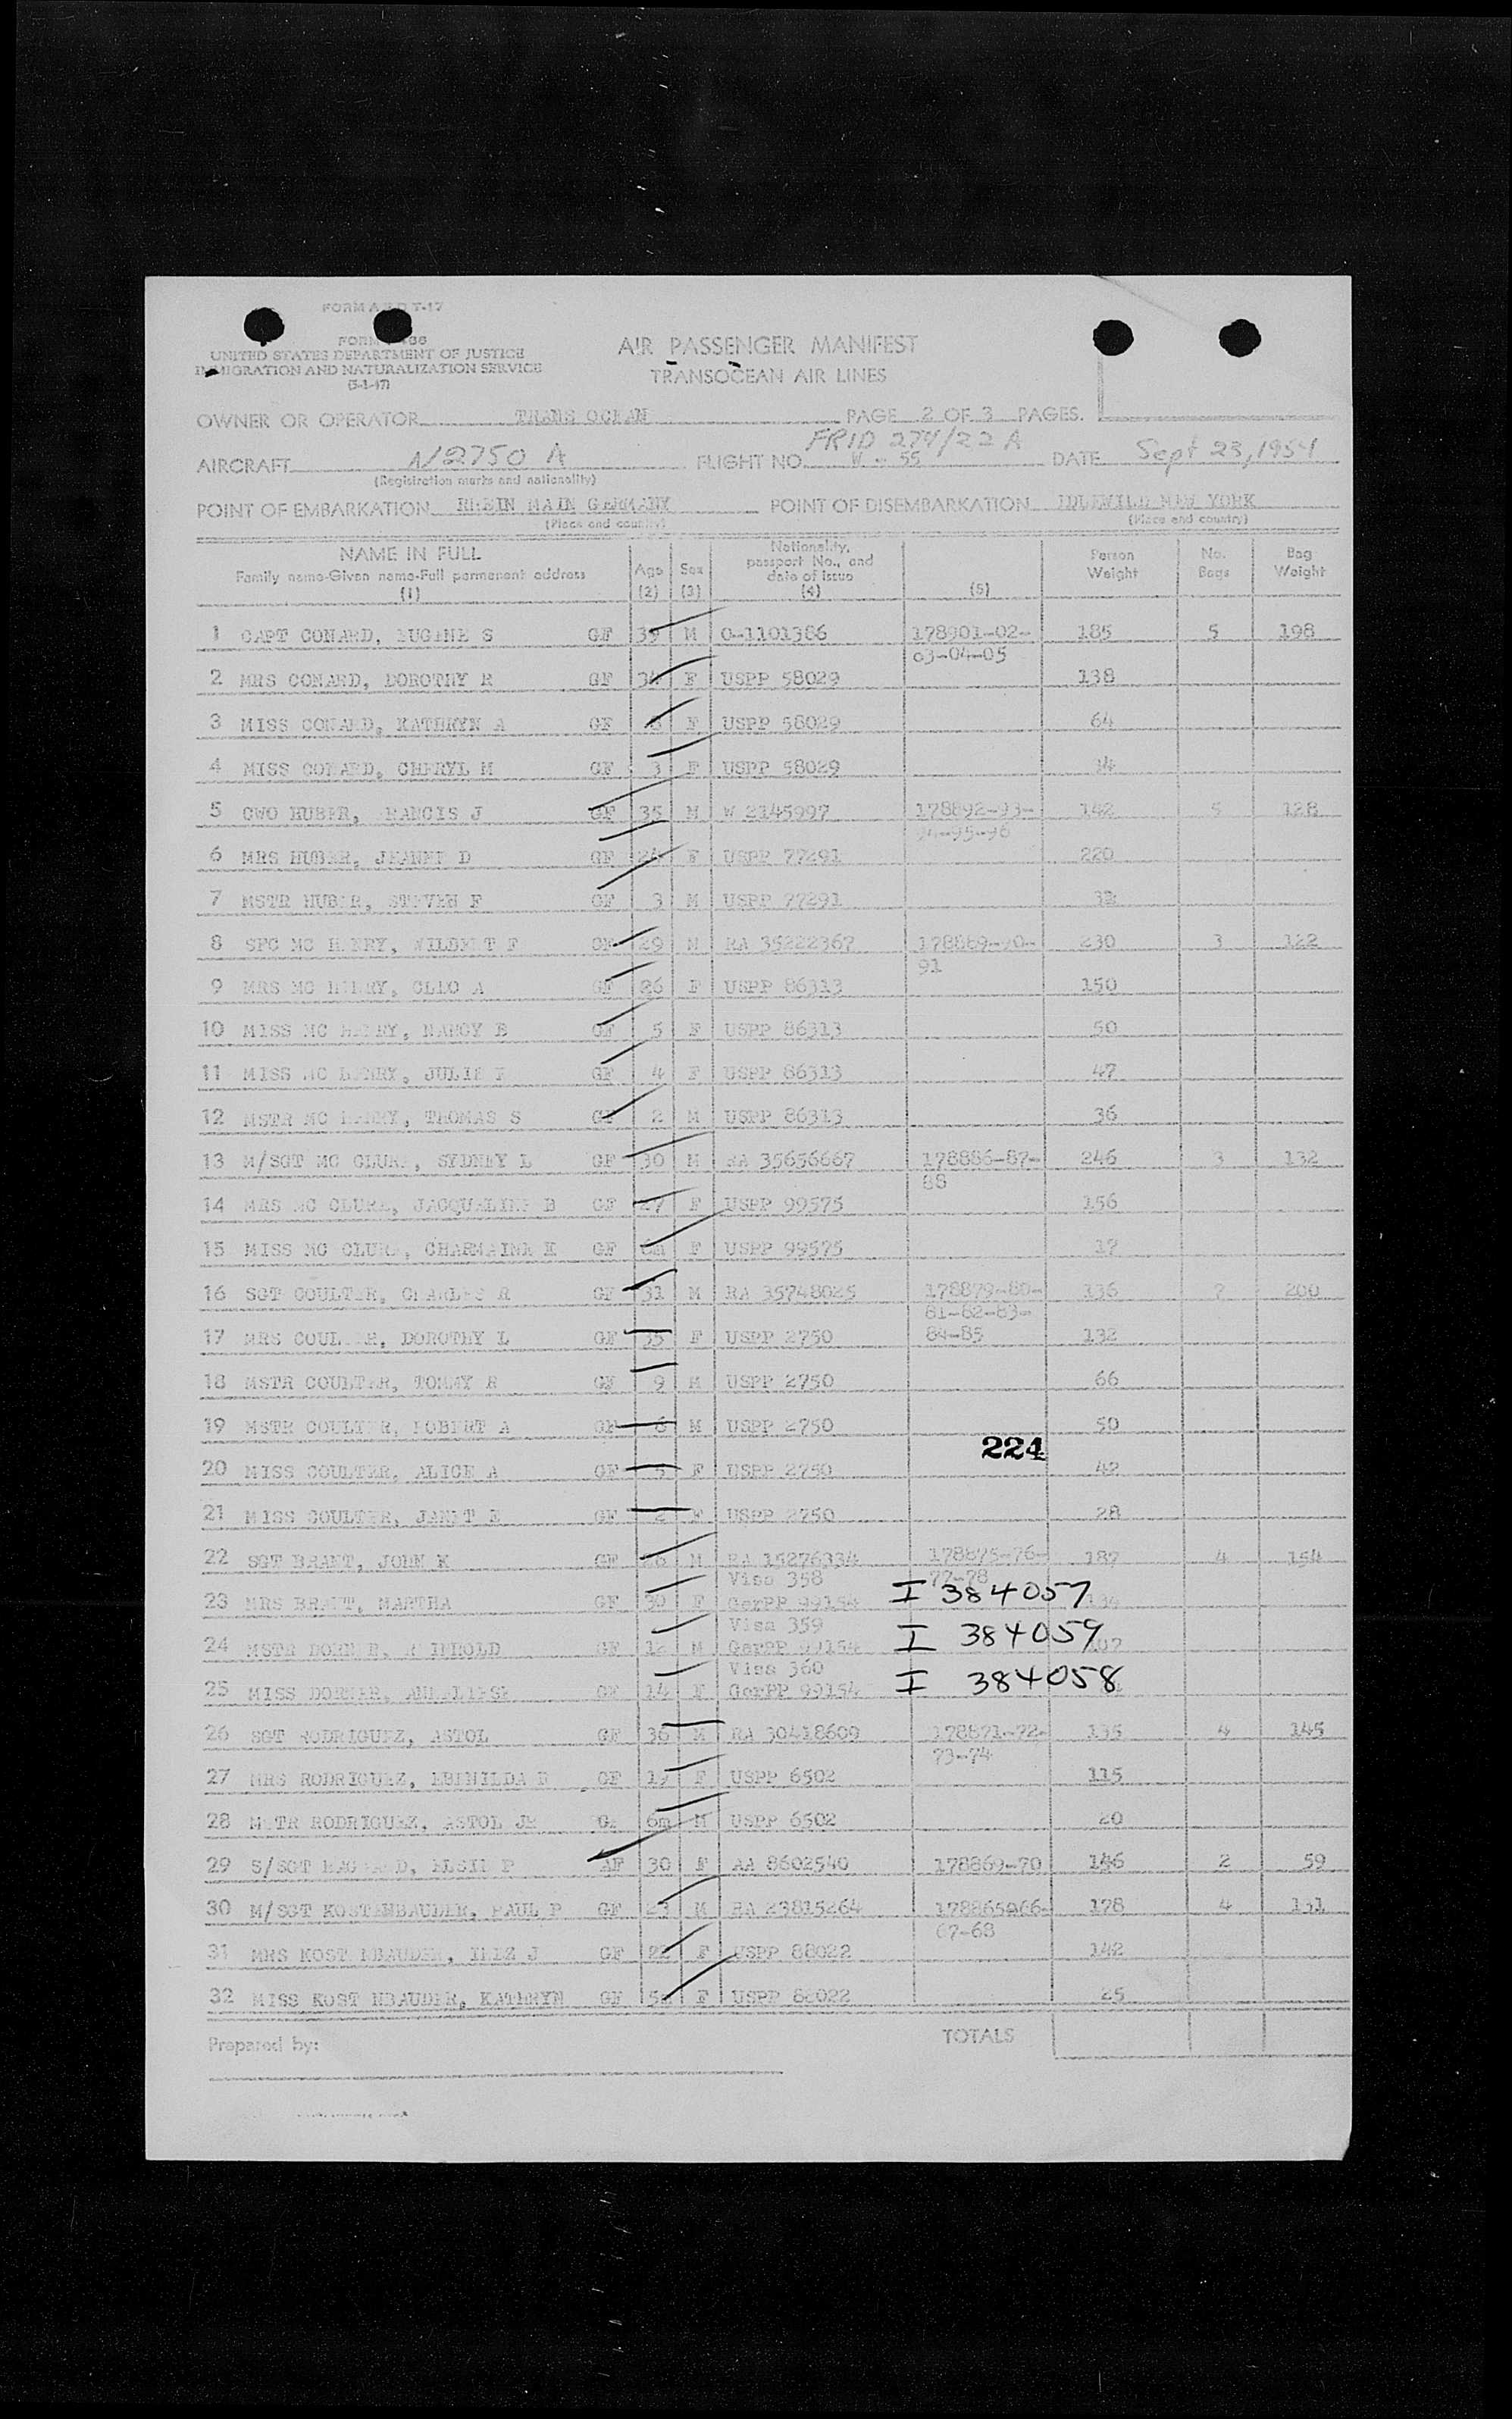 UNITED STATES DEPARTMENT OF JUSTICE
IMMIGRATION AND NATURALIZATION SERVICE
(5-1-47)
AIR PASSENGER MANIFEST
TRANSOCEAN AIR LINES
OWNER OR OPERATOR TRANS OCEAN PAGE 2 OF 3 PAGES.
FRID 274/22 A
AIRCRAFT N2750 A FLIGHT NO. W - 55 DATE Sept 23, 1954
(Registration marks and nationality)
POINT OF EMBARKATION RHEIN MAIN GERMANY POINT OF DISEMBARKATION IDLEWILD NEW YORK
(Place and country) (Place and country)
NAME IN FULL Age Sex Nationality, passport No., and date of issue Person Weight No. Bags Bag Weight
Family name-Given name-Full permanent address
(1) (2) (3) (4) (5)
1 CAPT CONARD, EUGENE S GF 39 M O-1101386 178901-02- 185 5 198
03-04-05
2 MRS CONARD, DOROTHY R GF 34 F USPP 58029 138
3 MISS CONARD, KATHRYN A GF F USPP 58029 64
4 MISS CONARD, CHERYL M GF 3 F USPP 58029 34
5 CWO HUBER, FRANCIS J GF 35 M W 2145997 178892-93- 142 5 128
94-95-96
6 MRS HUBER, JEANNE D GF F USPP 77291 220
7 MSTR HUBER, STEVEN F GF 3 M USPP 77291
8 SFC MC HENRY, WILBERT F GF 29 M RA 35222367 178889-90- 230 3 122
91
9 MRS MC HENRY, CLEO A GF 26 F USPP 86313 150
10 MISS MC HENRY, NANCY B GF 5 F USPP 86313 50
11 MISS MC HENRY, JULIE GF 4 F USPP 86313 47
12 MSTR MC HENRY, THOMAS S GF 2 M USPP 86313 36
13 M/SGT MC CLURE, SYDNEY L GF 30 M RA 35656667 178886-87- 246 3 132
88
14 MRS MC CLURE, JACQUELINE B GF 27 F USPP 99575 156
15 MISS MC CLURE, CHARMAINE K GF 6m F USPP 99575 17
16 SGT COULTER, CHARLES R GF 31 M RA 35748025 178879-80- 136 7 200
81-82-83-
17 MRS COULTER, DOROTHY L GF 35 F USPP 2750 84-85 132
18 MSTR COULTER, TOMMY R GF 9 M USPP 2750 66
19 MSTR COULTER, ROBERT A GF 6 M USPP 2750 50
224
20 MISS COULTER, ALICE A GF 5 F USPP 2750 42
21 MISS COULTER, JANET E GF 2 F USPP 2750 28
22 SGT BRANT, JOHN K GF 28 M RA 15276334 178875-76- 187 4 154
Visa 358 77-78
23 MRS BRANT, MARTHA GF 30 F GerPP 99154 I 384057 134
Visa 359
24 MSTR DORNER, REINHOLD GF 12 M GerPP 99154 I 384059 107
Visa 360
25 MISS DORNER, ANNELIESE GF 14 F GerPP 99154 I 384058
26 SGT RODRIGUEZ, ASTOL GF 36 M RA 30418609 178871-72- 135 4 145
73-74
27 MRS RODRIGUEZ, GF 19 F USPP 6502 115
28 MSTR RODRIGUEZ, ASTOL JR GF 6m M USPP 6502 20
29 S/SGT ELSIE P AF 30 F AA 8602540 178869-70 146 2 59
30 M/SGT KOSTENBAUDER, PAUL P GF 23 M RA 23815264 178865-66- 178 4 131
67-68
31 MRS KOSTENBAUDER, INEZ J GF 22 F USPP 88022 142
32 MISS KOSTENBAUDER, KATHRYN GF 5m F USPP 88022 25
Prepared by: TOTALS